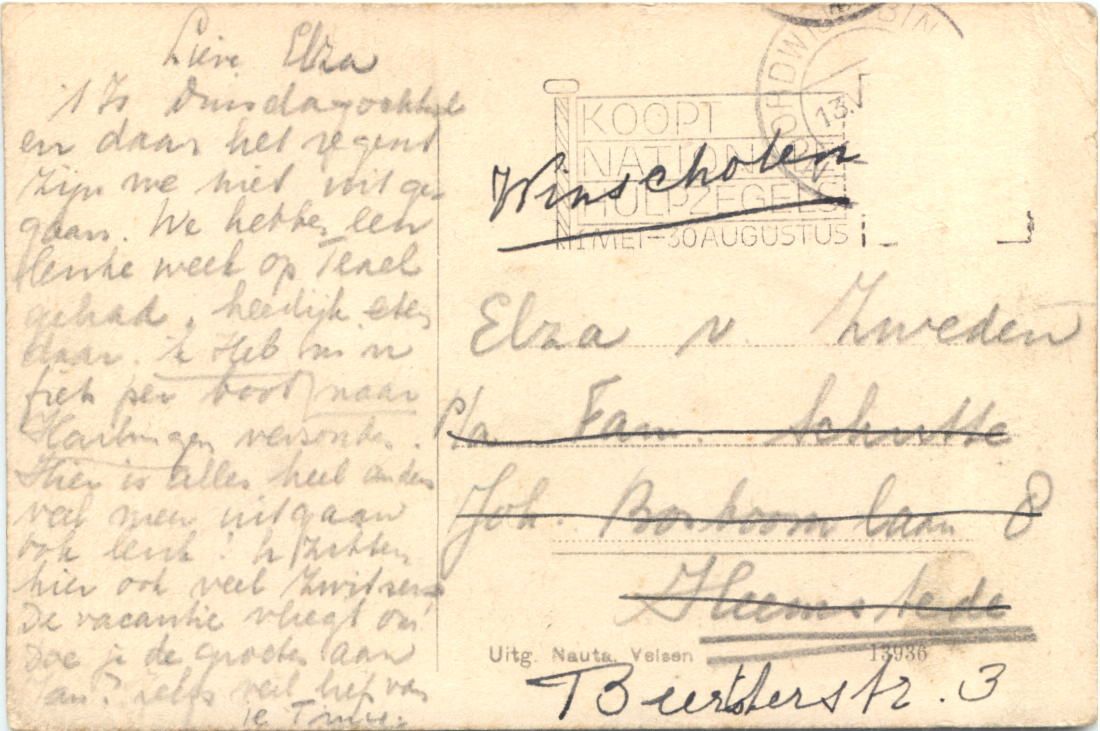 Lieve Elza
't Is Dinsdagochtend
en daar het regent
zijn we niet uitge-
gaan. We hebben een
leuke week op Texel
gehad, heerlijk eten
daar. ik Heb m'n
fiets per boot naar
Harlingen verzonden.
Hier is alles heel anders
veel meer uitgaan
ook leuk! Er zitten
hier ook veel Zwitsers
De vacantie vliegt om!
Doe je de groeten aan
Jan? veel liefs van
je Truus.
NOORDWIJK-BINN
13.
KOOPT
NATIONALE
HULPZEGELS
1 MEI-30 AUGUSTUS
Winschoten
Elza v. Zweden
p/a Fam. Schutte
Joh. Bosboomlaan 8
Heemstede
Uitg. Nauta, Velsen 13936
Beertsterstr. 3